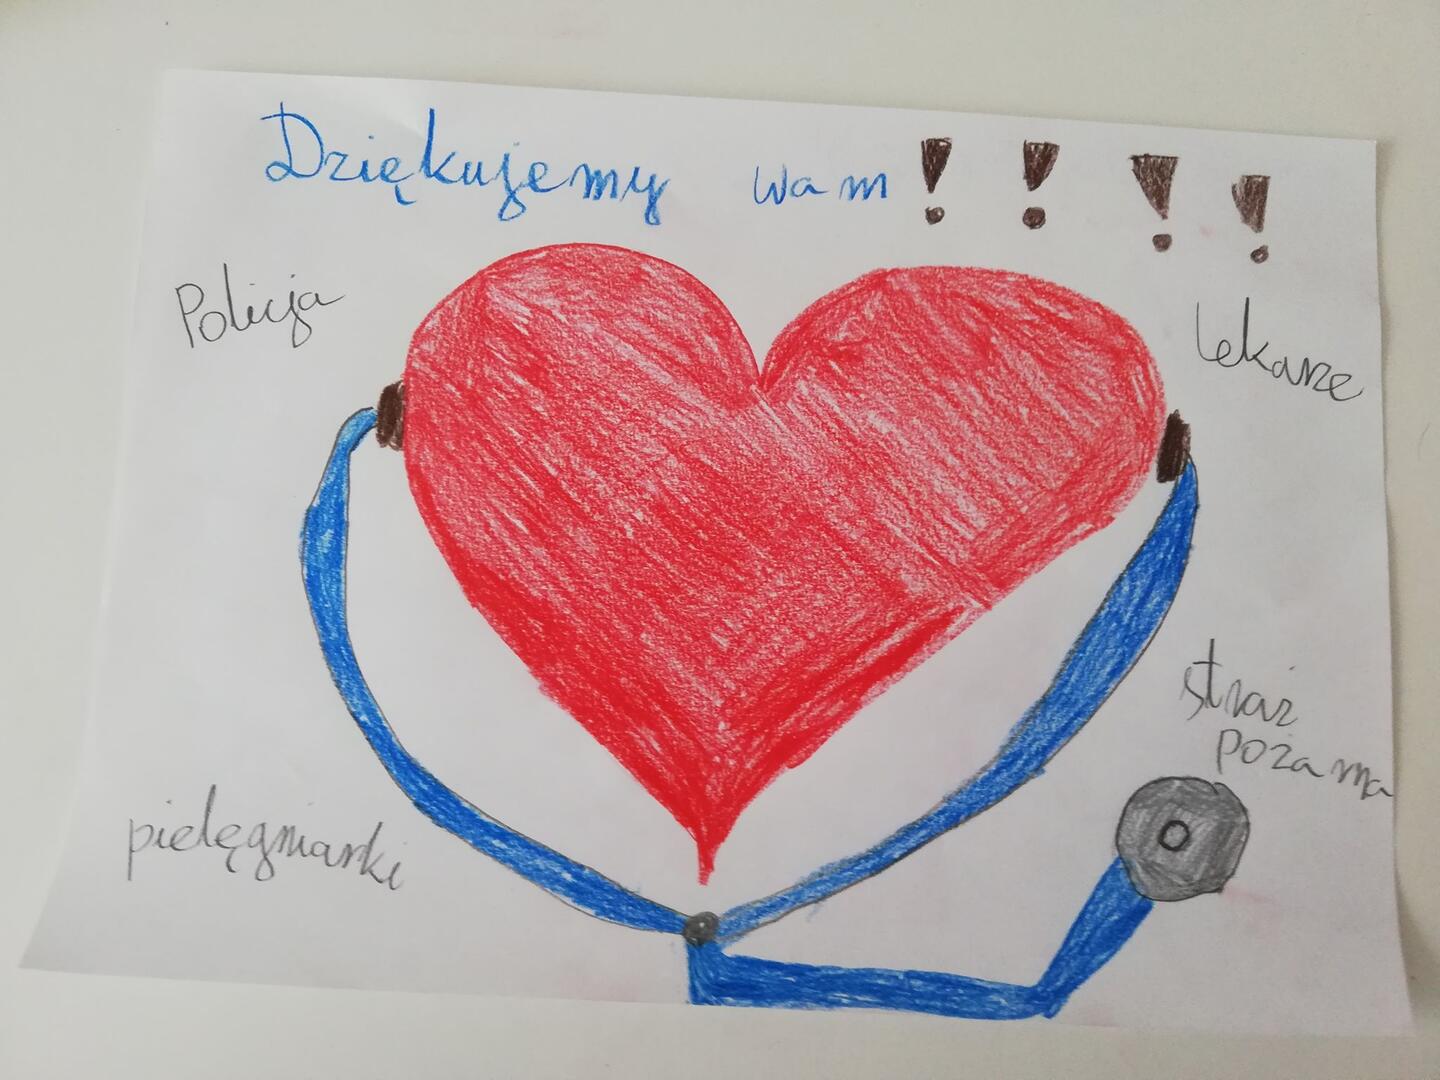 Dziękujemy wam !!!!
Policja
lekarze
straż
pożarna
pielęgniarki